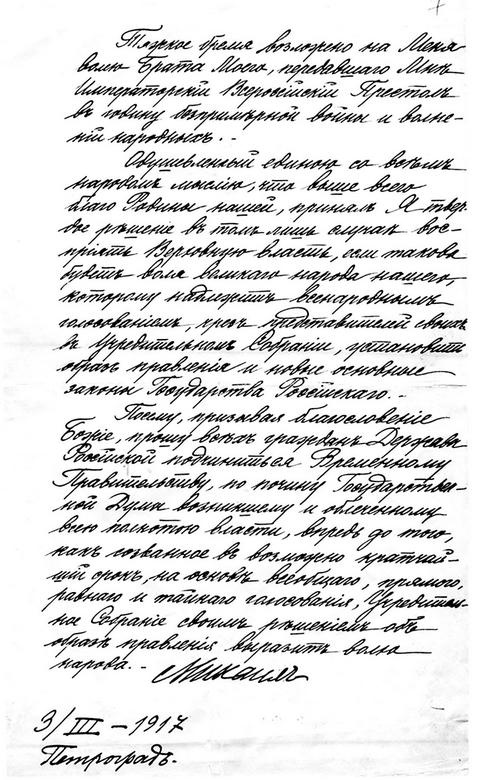 Тяжкое бремя возложено на Меня
волею Брата Моего, передавшаго Мнѣ
Императорскій Всероссійскій Престолъ
въ годину безпримѣрной войны и волне-
ній народныхъ. -
Одушевленный единою со всѣмъ
народомъ мыслію, что выше всего
благо Родины нашей, принялъ Я твер-
дое рѣшеніе въ томъ лишь случаѣ вос-
пріять Верховную власть, если такова
будетъ воля великаго народа нашего,
которому надлежитъ всенароднымъ
голосованіемъ, чрезъ представителей своихъ
въ Учредительномъ Собраніи, установить
образ правленія и новые основные
законы Государства Россійскаго. -
Посему, призывая благословеніе
Божіе, прошу всѣхъ гражданъ Державы
Россійской подчиниться Временному
Правительству, по почину Государствен-
ной Думы возникшему и облеченному
всею полнотою власти, впредь до того,
какъ созванное въ возможно кратчай-
шій срокъ, на основѣ всеобщаго, прямого,
равнаго и тайнаго голосованія, Учредитель-
ное Собраніе своимъ рѣшеніемъ объ
образѣ правленія выразитъ волю
народа. -
Михаилъ
3/III - 1917
Петроградъ.